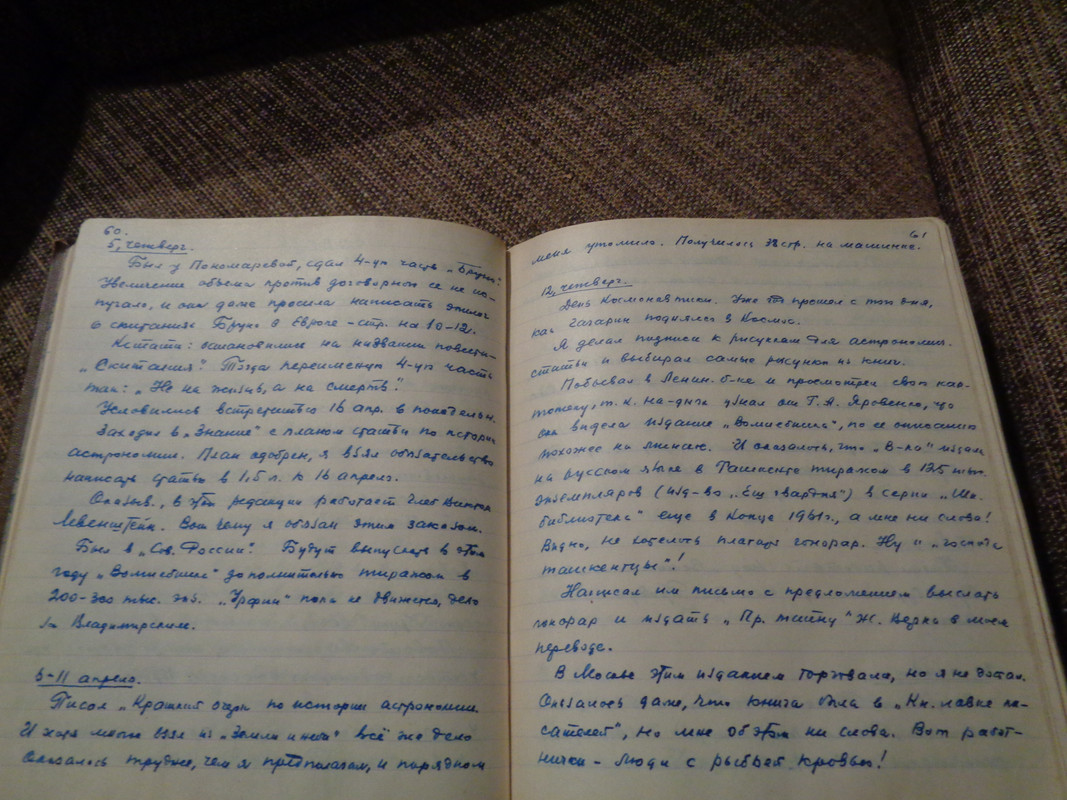 60.
5, четверг.
Был у Пономаревой, сдал 4-ую часть „Бруно".
Увеличение объема против договорного ее не ис-
пугало, и она даже просила написать эпилог
о скитаниях Бруно в Европе – стр. на 10-12.
Кстати: остановились на названии повести –
„Скитания". Тогда переименую 4-ую часть
так: „Не на жизнь, а на смерть".
Условились встретиться 16 апр. в понедельн.
Заходил в „Знание" с планом статьи по истории
астрономии. План одобрен, я взял обязательство
написать статью в 1,5 л. к 16 апреля.
Оказыв., в этой редакции работает Глеб
Левенштейн. Вот чему я обязан этим заказом.
Был в „Сов. России". Будут выпускать в этом
году „Волшебник" дополнительно тиражом в
200-300 тыс. экз. „Урфин" пока не движется, дело
за Владимирским.
6-11 апреля.
Писал „Краткий очерк по истории астрономии
И хотя многое взял из „Земли и неба" всё же дело
оказалось труднее, чем я предполагал, и порядком
61
меня утомило. Получилось 38 стр. на машинке.
12, четверг.
День Космонавтики. Уже год прошел с того дня,
как Гагарин поднялся в Космос.
Я делал подписи к рисункам для астрономич.
статьи и выбирал самые рисунки из книг.
Побывал в Ленин. б-ке и просмотрел свою кар-
тотеку, т. к. на-днях узнал от Т. А. Яровенко, что
она видела издание „Волшебника", по ее описанию
похожее на мишаю. И оказалось, что „В-ка" издали
на русском языке в Ташкенте тиражом в 125 тыс.
экземпляров (изд-во „Ёш гвардия") в серии „Шк.
библиотека" еще в конце 1961г., а мне ни слова!
Видно, не хотелось платить гонорар. Ну и „господа
ташкентцы"!
Написал им письмо с предложением выслать
гонорар и издать „Пр. тайну" Ж. Верна в моем
переводе.
В Москве этим изданием торговали, но я не достал.
Оказалось даже, что книга была в „Кн. лавке пи-
сателей", но мне об этом ни слова. Вот работ-
нички – люди с рыбьей кровью!